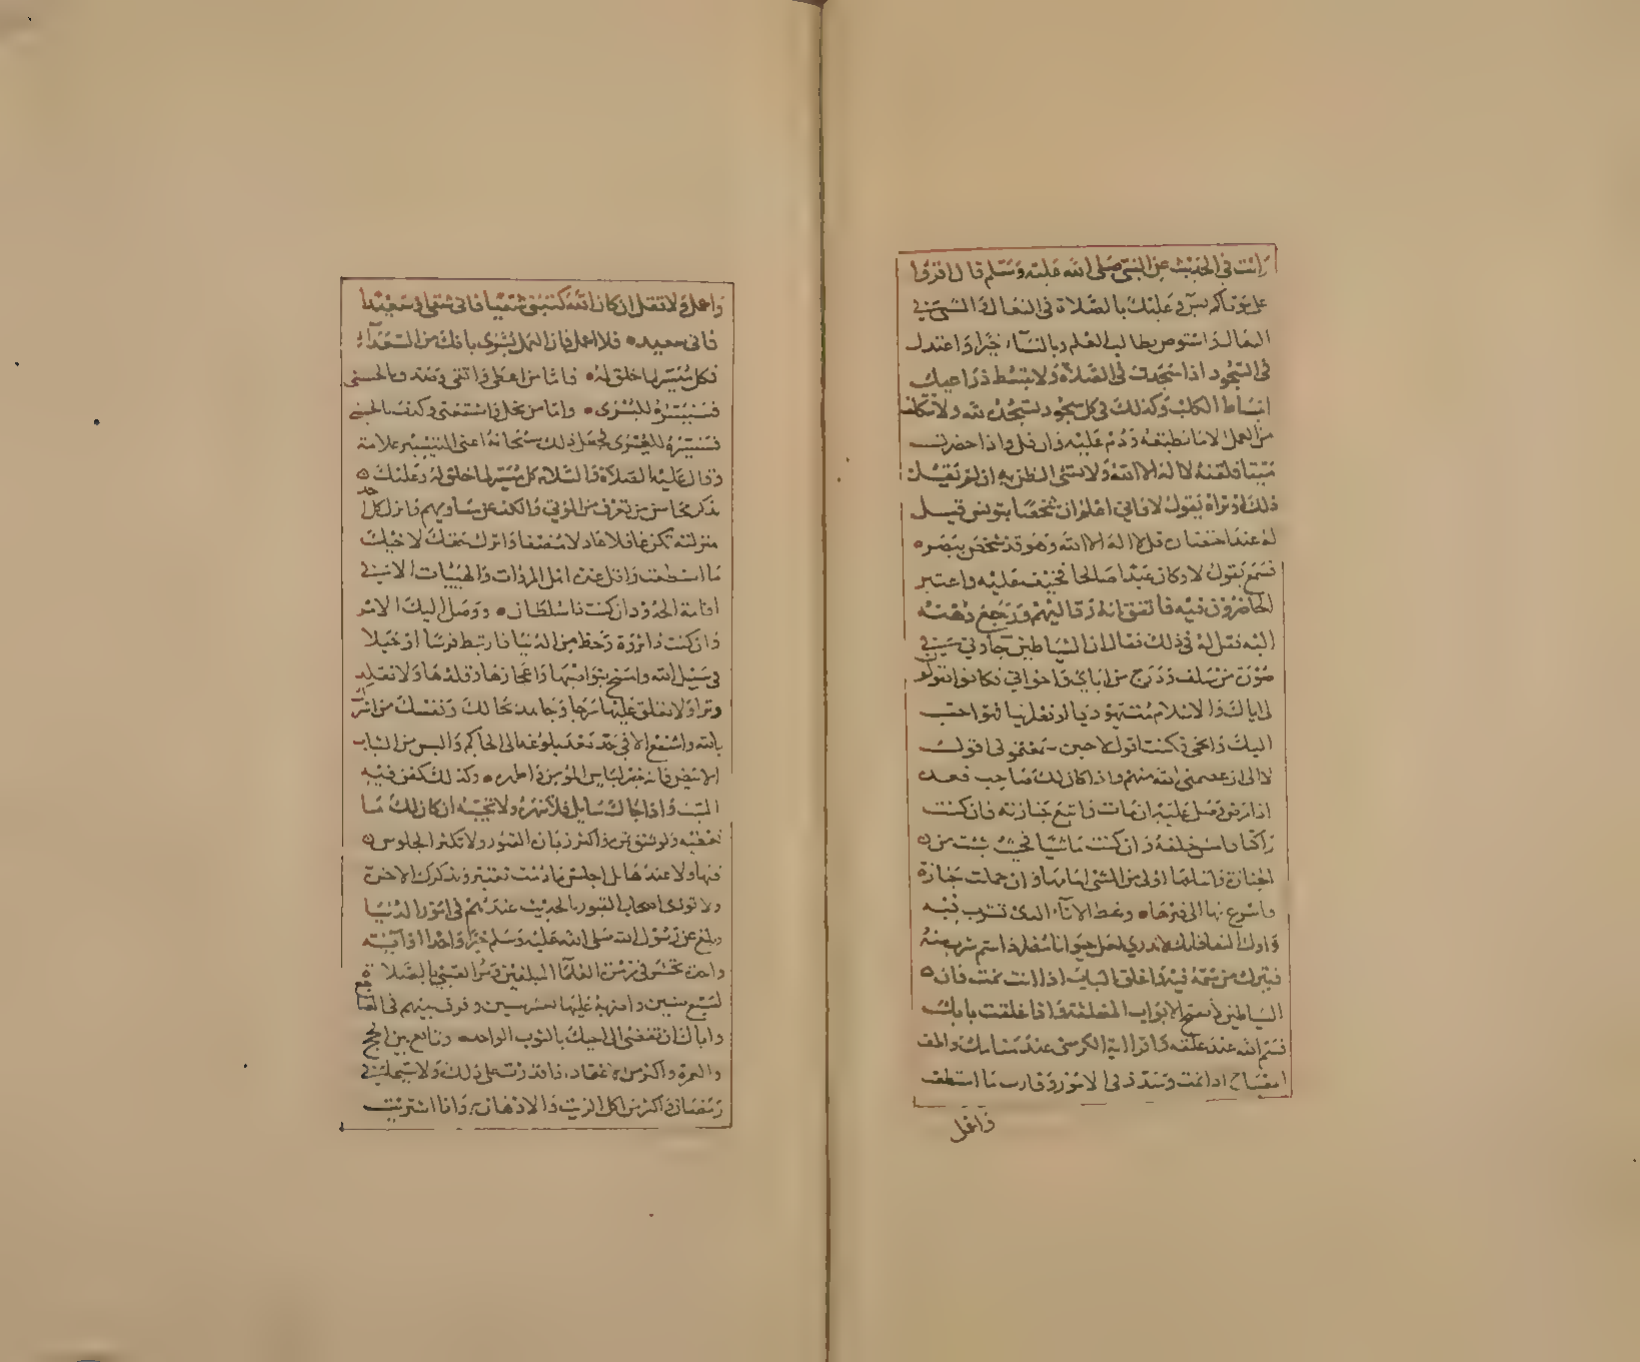 رأيت في الحديث عن النبي صلى الله عليه وسلم قال اقروا
على موتاكم يس وعليك بالصلاة في النعال والسعي في
النعال واستوص بطالب العلم وبالنساء خيرا واعتدل
في السجود اذا سجدت في الصلاة ولا تبسط ذراعيك
انبساط الكلب وكذلك في كل سجود تسجده لله ولا تكلف
من العمل الا ما تطيقه ودم عليه وان قل واذا حضرت
ميتا فلقنه لا اله الا الله ولا تسئ الظن به ان لم يقل
ذلك او تراه يقول لا فاني اعلم ان شخصا بتونس قيل
له عند احتضاره قل لا اله الا الله وهو قد شخص ببصره
فسمع يقول لا وكان عبدا صالحا فخيف عليه واعتبر
الحاضرون فيه فاتفق انه رد اليهم ورجع ذهنه
اليه فقيل له في ذلك فقال ان الشياطين جاوني في
صورة من سلف ودرج من اباي واخواني فكانوا يقولوا
لي اياك والاسلام مت يهوديا او نصرانيا فهو احب
اليك وانجى فكنت اقول لا حين سمعتموني اقول
لا الى ان عصمني الله منهم واذا كان لك صاحب فعده
اذا مرض وصل عليه ان مات واتبع جنازته فان كنت
راكبا فامش خلفه وان كنت ماشيا فحيث شئت من
الجنازة وامامها اولى من المشي امامها وان حملت جنازة
فاسرع بها الى قبرها وغط الاناء الذي تشرب فيه
واوك السقا فانك لا تدري لعل حيوانا مضرا ذا سم شرب منه
فيترك من سمه فيه واغلق الباب اذا انت نمت فان
الشياطين لم تفتح الابواب المغلقة واذا غلقت بابك
فسم الله عند غلقه واقرا اية الكرسي عند منامك واطف
المصباح اذا نمت وسدد في الامور وقارب ما استطعت
واعمل
واعمل ولا تقل ان كان الله كتبني شقيا فاني شقي او سعيدا
فاني سعيد فلا اعمل فان العمل بشرى بانك من السعداء
فكل ميسر لما خلق له فاما من اعطى واتقى وصدق بالحسنى
فسنيسره لليسرى واما من بخل واستغنى وكذب بالحسنى
فسنيسره للعسرى فجعل ذلك سبحانه اعني التيسير علامة
وقال عليه الصلاة والسلام كل ميسر لما خلق له وعليك
بذكر محاسن من تعرف من الموتى والكف عن مساويهم وانزل كل احد
منزلته تكن عادلا منصفا واترك حقك لاخيك
ما استطعت واقل عثرة اهل المروات والهيئات الا في
اقامة الحدود ان كنت ذا سلطان ووصل اليك الامر
وان كنت ذا ثروة وحظ من الدنيا فارتبط فرسا او خيلا
في سبيل الله وامسح بنواصيها واعجازها وقلدها ولا تقلد
وترا ولا تعلق عليها جرسا وجاهد بمالك ونفسك من اشرك
بالله واشفع الا في حد بعد بلوغه الى الحاكم والبس من الثياب
الابيض فانه خير لباس المؤمن واطهر وكذلك كفن فيه
الميت واذا جاك سايل فلا تنهره ولا تخيبه ان كان لك ما
تعطيه ولو شق تمرة واكثر زيارة القبور ولا تكثر الجلوس
فيها ولا عندها بل اجلس ما دمت تعتبر وتذكرك الاخرة
ولا توذي اصحاب القبور بالحديث عندهم في امور الدنيا
وبلغ عن رسول الله صلى الله عليه وسلم خبرا واحدا او اية
واحدة تحشر في زمرة العلما المبلغين ومر الصبي بالصلاة
لسبع سنين واضربه عليها لعشر سنين وفرق بينهم في المضاجع
واياك ان تفضي الى اخيك بالثوب الواحد وتابع بين الحج
والعمرة واكثر من الاعتمار ان قدرت على ذلك ولا سيما في
رمضان واكثر من اكل الزيت والادهان به واذا اشتريت